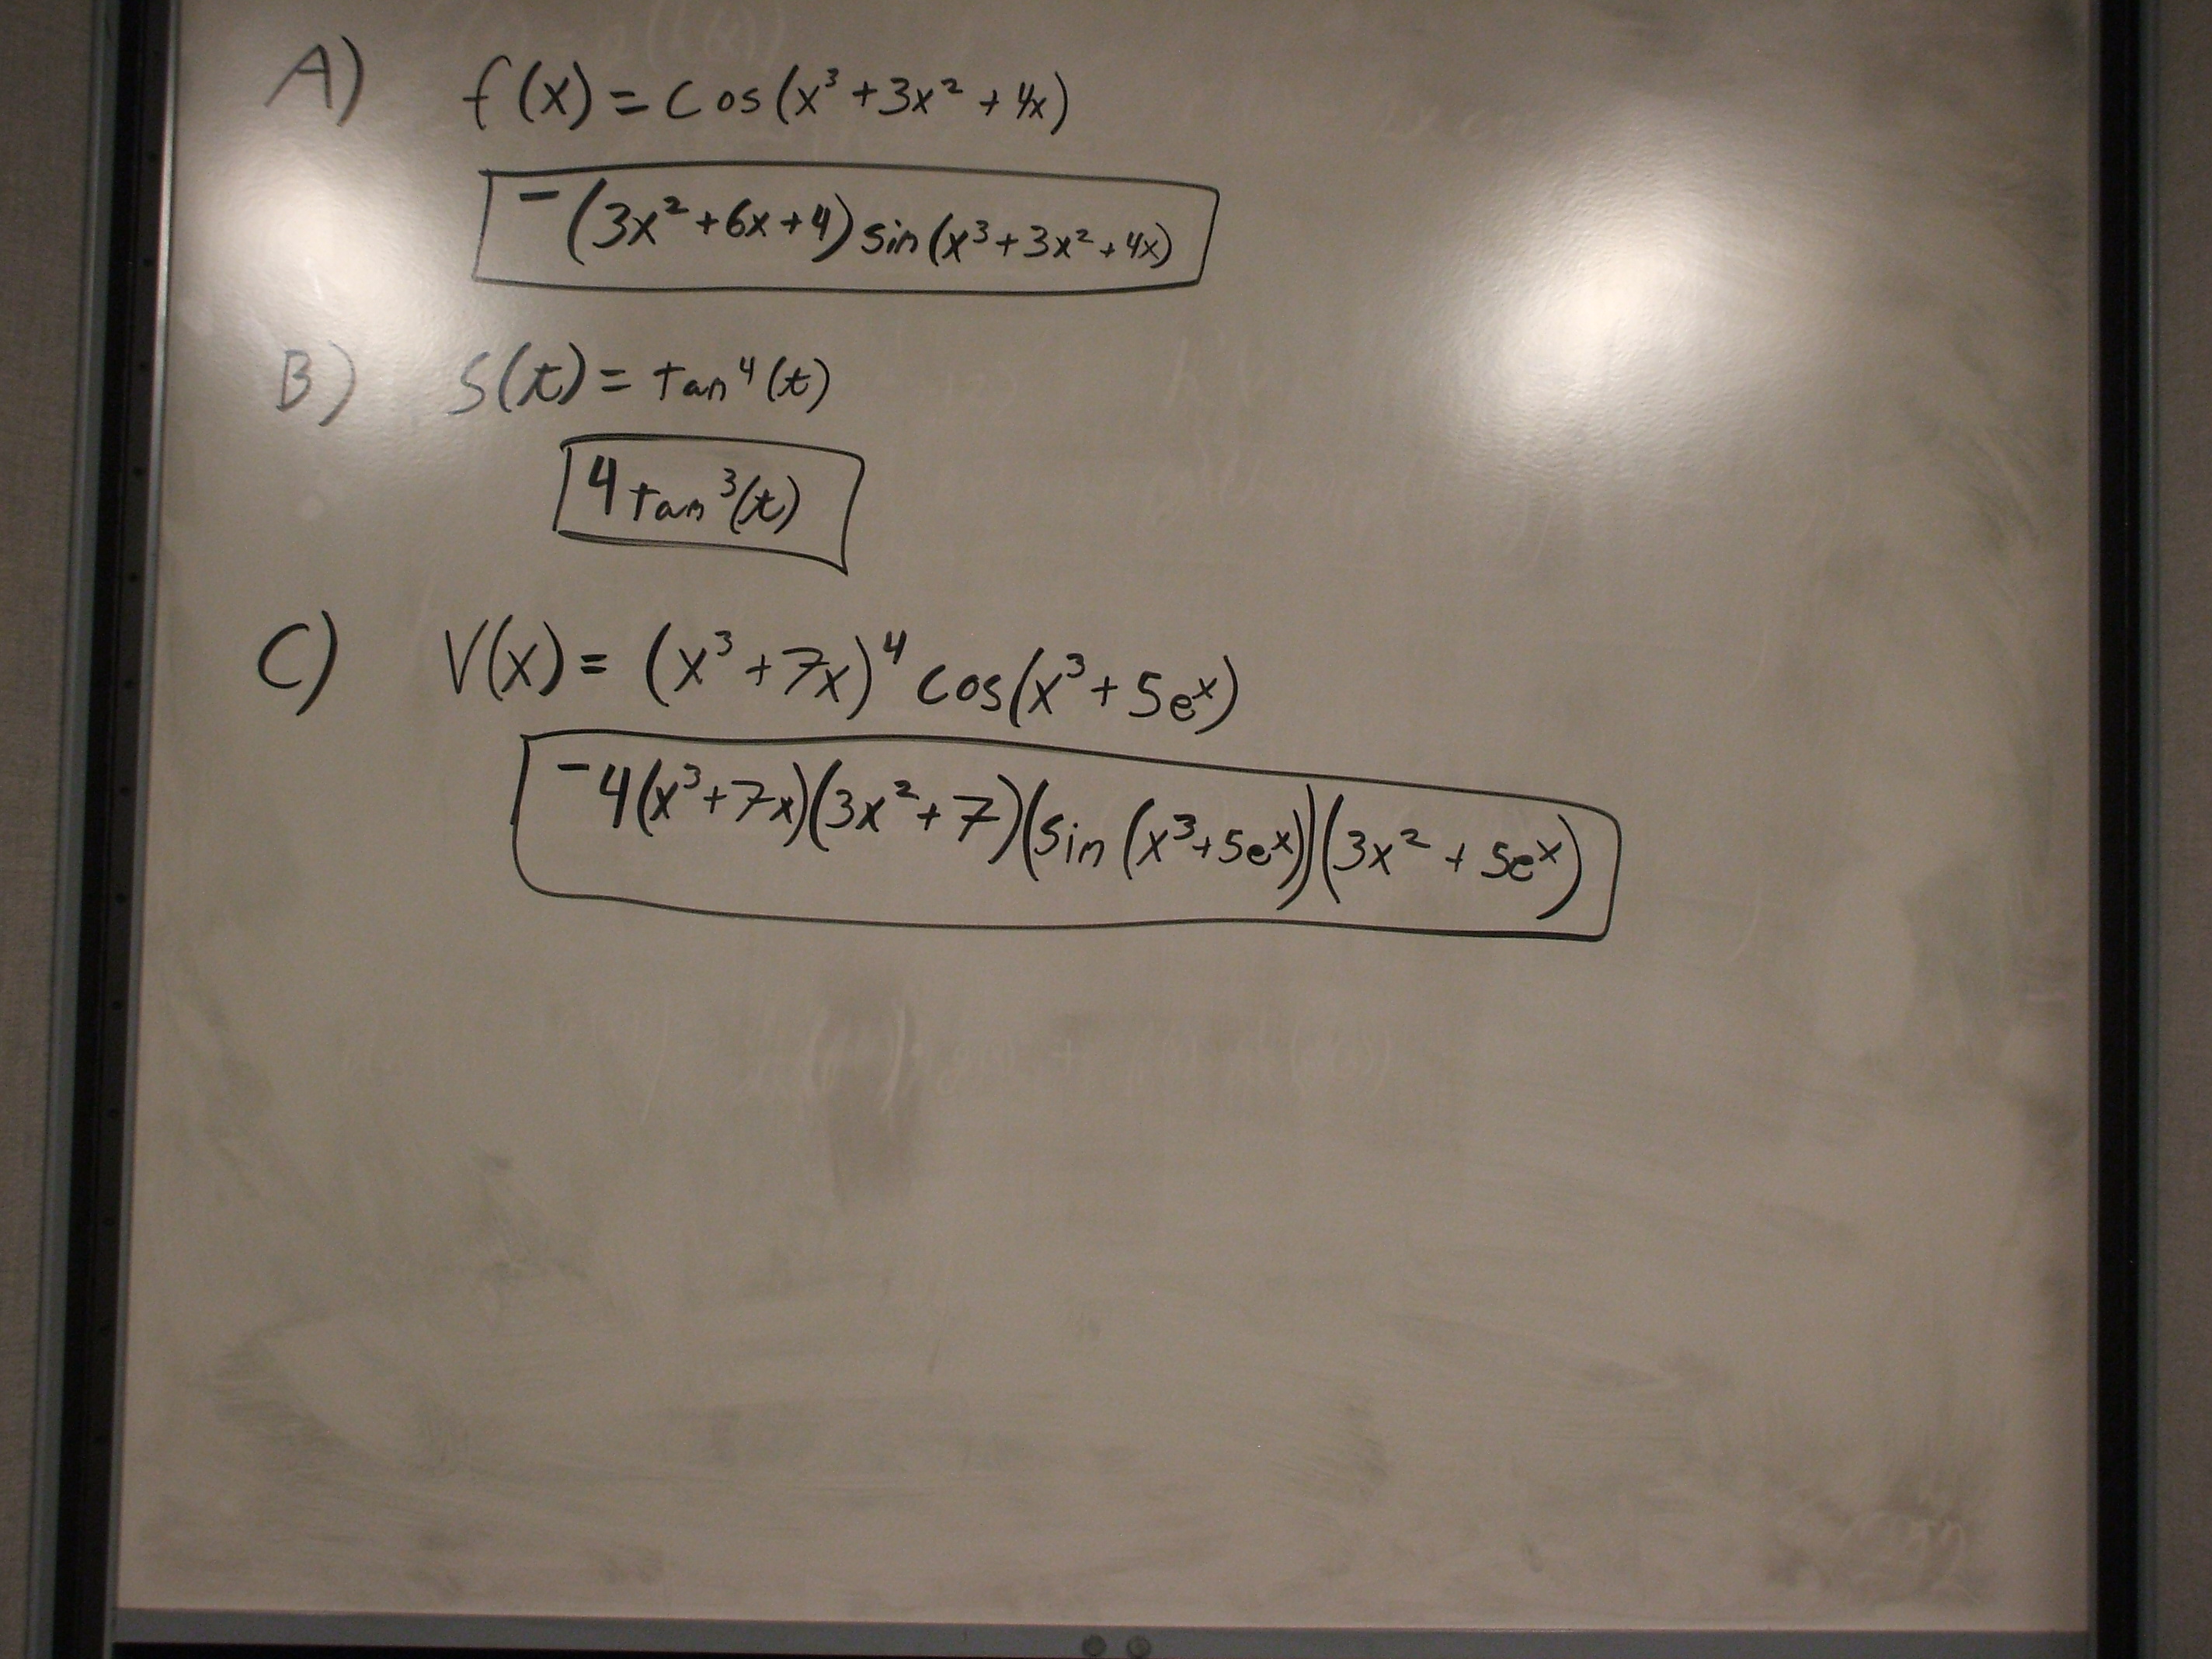 A) f(x) = cos(x³+3x²+4x)
-(3x²+6x+4) sin(x³+3x²+4x)
B) S(t) = tan⁴(t)
4 tan³(t)
C) V(x) = (x³+7x)⁴ cos(x³+5eˣ)
-4(x³+7x)(3x²+7)(sin(x³+5eˣ))(3x²+5eˣ)